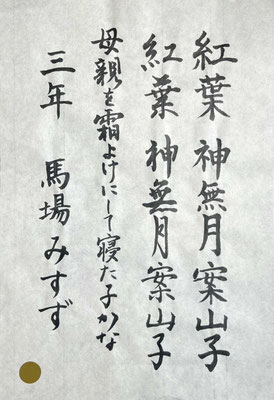 紅葉 神無月 案山子
紅葉 神無月 案山子
母親を霜よけにして寝た子かな
三年 馬場みすず